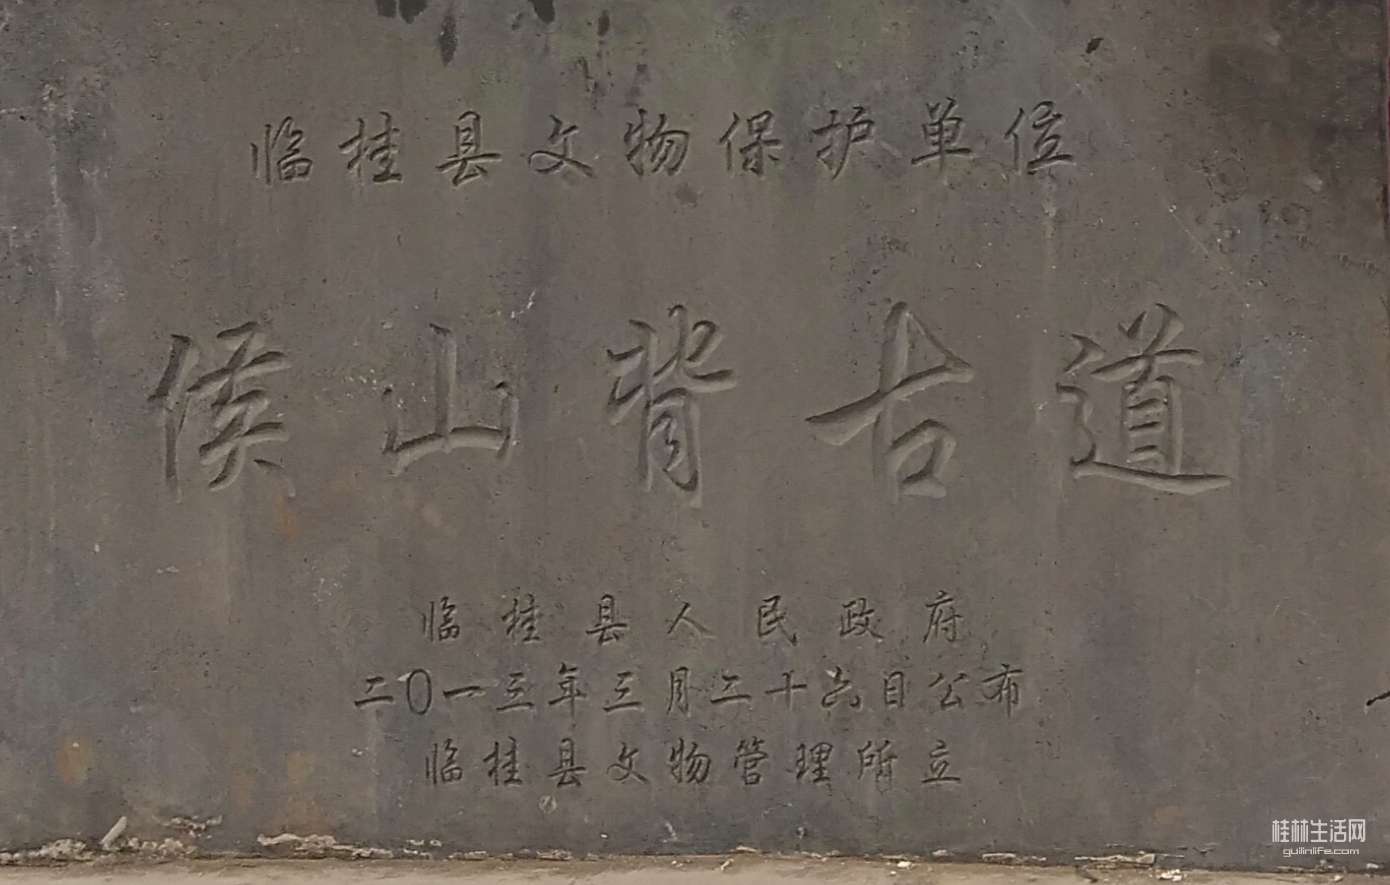 临桂县文物保护单位
侯山背古道
临桂县人民政府
二〇一三年三月二十六日公布
临桂县文物管理所立
桂林生活网
guilinlife.com